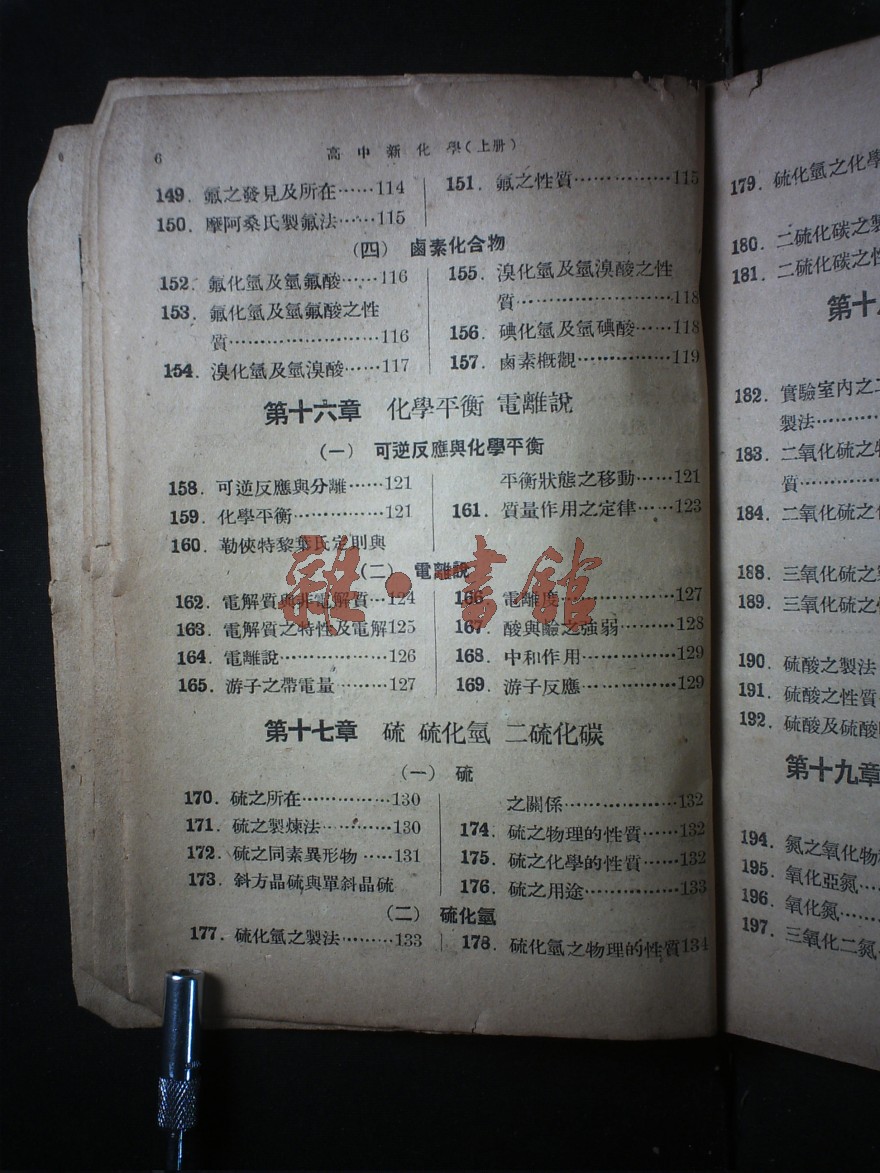 6
高中新化學(上册)
149. 氟之發見及所在……114
150. 摩阿桑氏製氟法……115
151. 氟之性質……………115
(四) 鹵素化合物
152. 氟化氫及氫氟酸……116
153. 氟化氫及氫氟酸之性
質……………………116
154. 溴化氫及氫溴酸……117
155. 溴化氫及氫溴酸之性
質……………………118
156. 碘化氫及氫碘酸……118
157. 鹵素概觀……………119
第十六章 化學平衡 電離說
(一) 可逆反應與化學平衡
158. 可逆反應與分離……121
159. 化學平衡……………121
160. 勒俠特黎葉氏定則與
平衡狀態之移動……121
161. 質量作用之定律……123
(二) 電離說
162. 電解質與非電解質…124
163. 電解質之特性及電解125
164. 電離說………………126
165. 游子之帶電量………127
166. 電離度………………127
167. 酸與鹼之強弱………128
168. 中和作用……………129
169. 游子反應……………129
雜·書館
第十七章 硫 硫化氫 二硫化碳
(一) 硫
170. 硫之所在……………130
171. 硫之製煉法…………130
172. 硫之同素異形物……131
173. 斜方晶硫與單斜晶硫
之關係………………132
174. 硫之物理的性質……132
175. 硫之化學的性質……132
176. 硫之用途……………133
(二) 硫化氫
177. 硫化氫之製法………133
178. 硫化氫之物理的性質134
179. 硫化氫之化學
180. 二硫化碳之製
181. 二硫化碳之性
第十
182. 實驗室內之二
製法……
183. 二氧化硫之物
質……
184. 二氧化硫之化
188. 三氧化硫之製
189. 三氧化硫之性
190. 硫酸之製法
191. 硫酸之性質
192. 硫酸及硫酸
第十九章
194. 氮之氧化物
195. 氧化亞氮…
196. 氧化氮……
197. 三氧化二氮